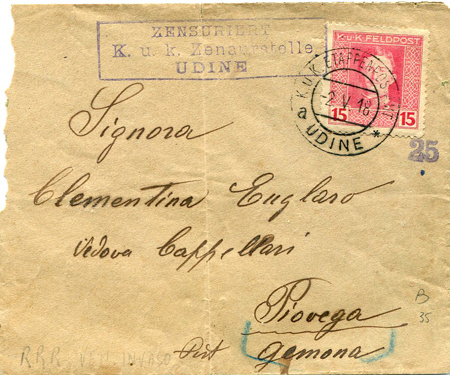 ZENSURIERT
K. u. k. Zensurstelle
UDINE
K.u.K. FELDPOST
15 15
K.u.K. ETAPPENPOSTAMT
-2.V.18
a UDINE *
25
Signora
Clementina Englaro
Vedova Cappellari
Piovega
Gemona
B
35
RRR